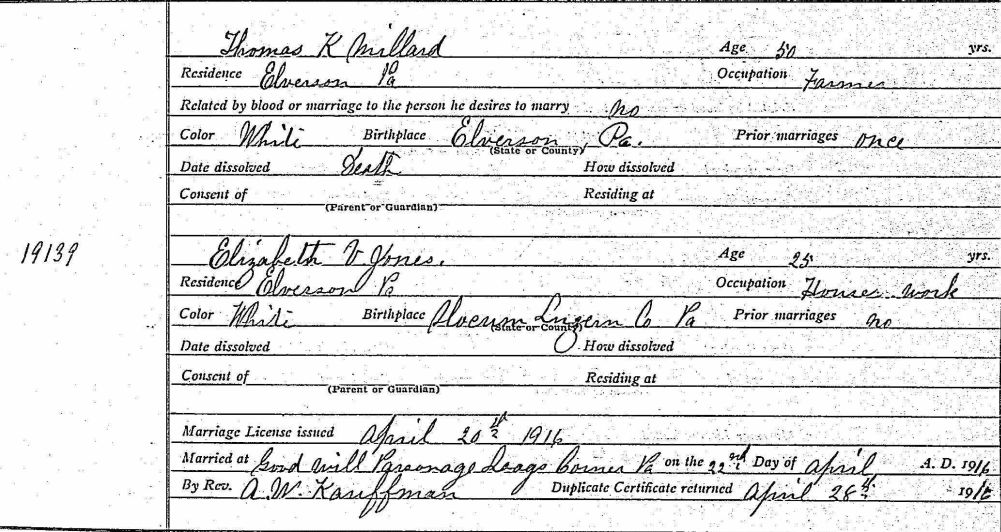 Thomas K Millard Age 50 yrs.
Residence Elverson Pa Occupation Farmer
Related by blood or marriage to the person he desires to marry no
Color White Birthplace Elverson, Pa. Prior marriages once
(State or County)
Date dissolved Death How dissolved
Consent of Residing at
(Parent or Guardian)
19139
Elizabeth V Jones. Age 25 yrs.
Residence Elverson Pa Occupation House work
Color White Birthplace Slocum Luzern Co Pa Prior marriages no
(State or County)
Date dissolved How dissolved
Consent of Residing at
(Parent or Guardian)
Marriage License issued April 20th 1916
Married at Good will Parsonage Loags Corner Pa on the 22nd Day of April A. D. 1916
By Rev. A. W. Kauffman Duplicate Certificate returned April 28th 1916